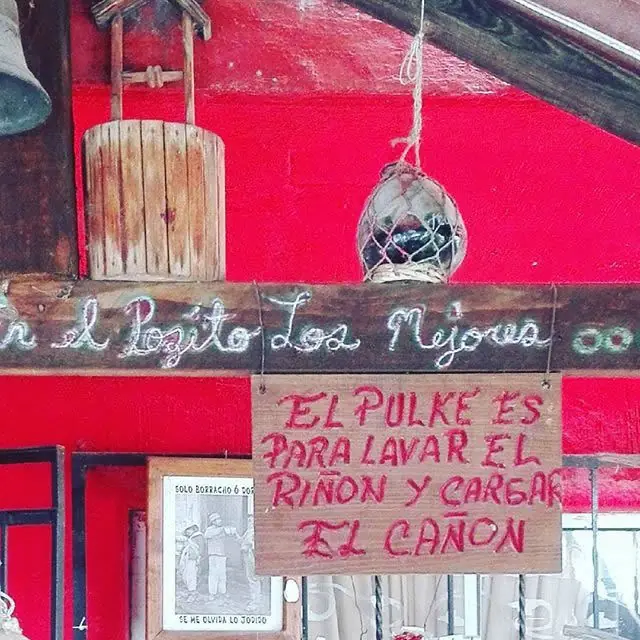 En el Pozito Los Mejores
EL PULKE ES
PARA LAVAR EL
RIÑON Y CARGAR
EL CAÑON
SOLO BORRACHO Ó
SE ME OLVIDA LO JODIDO